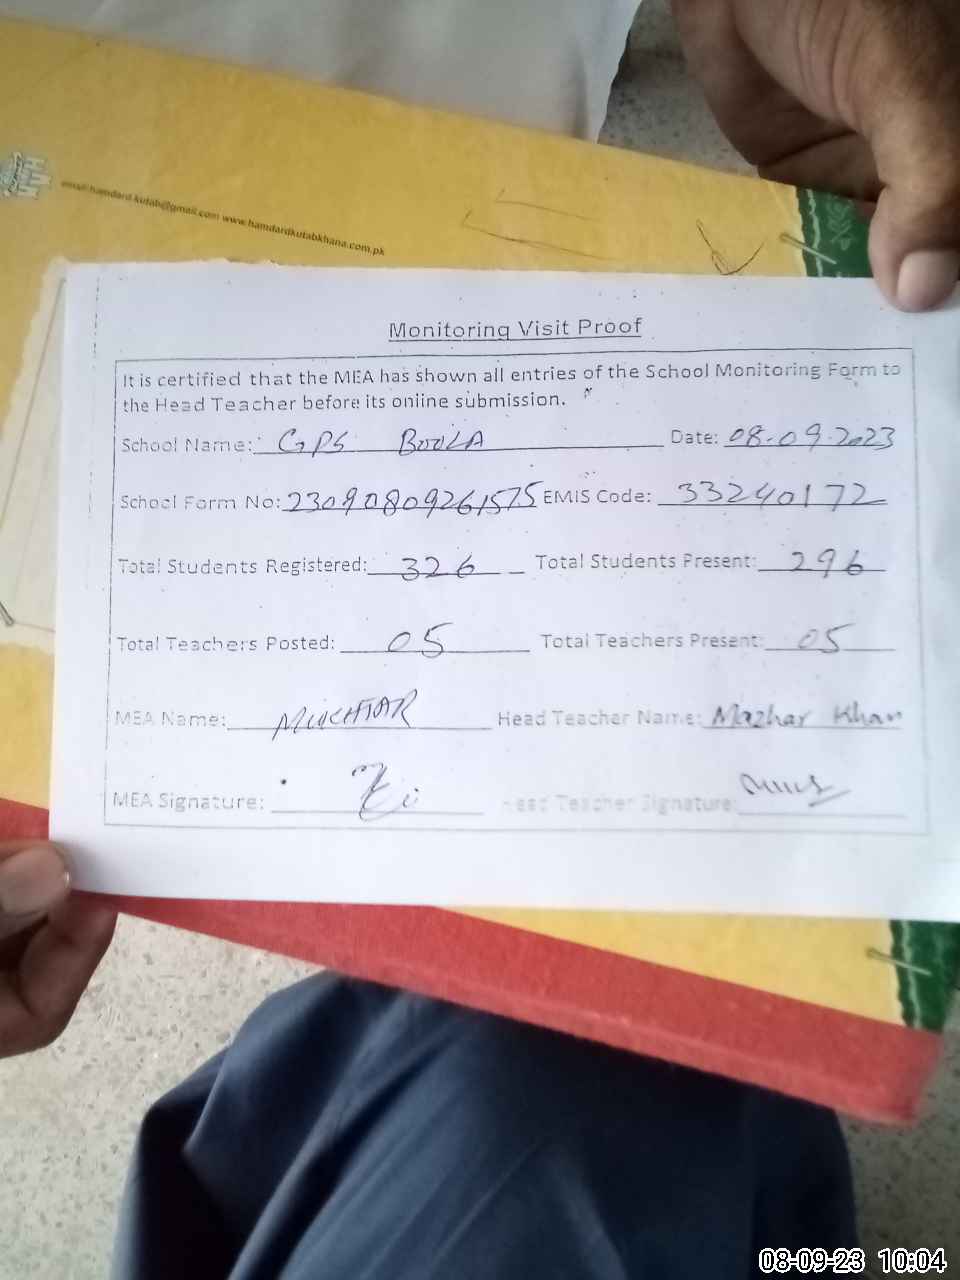 email:hamdard.kutab@gmail.com www.hamdardkutabkhana.com.pk
Monitoring Visit Proof
It is certified that the MEA has shown all entries of the School Monitoring Form to
the Head Teacher before its online submission.
School Name: GPS BOOLA Date: 08-09-2023
School Form No: 23090809261575 EMIS Code: 33240172
Total Students Registered: 326 Total Students Present: 296
Total Teachers Posted: 05 Total Teachers Present: 05
MEA Name: MUKHTIAR Head Teacher Name: Mazhar Khan
MEA Signature: Head Teacher Signature:
08-09-23 10:04